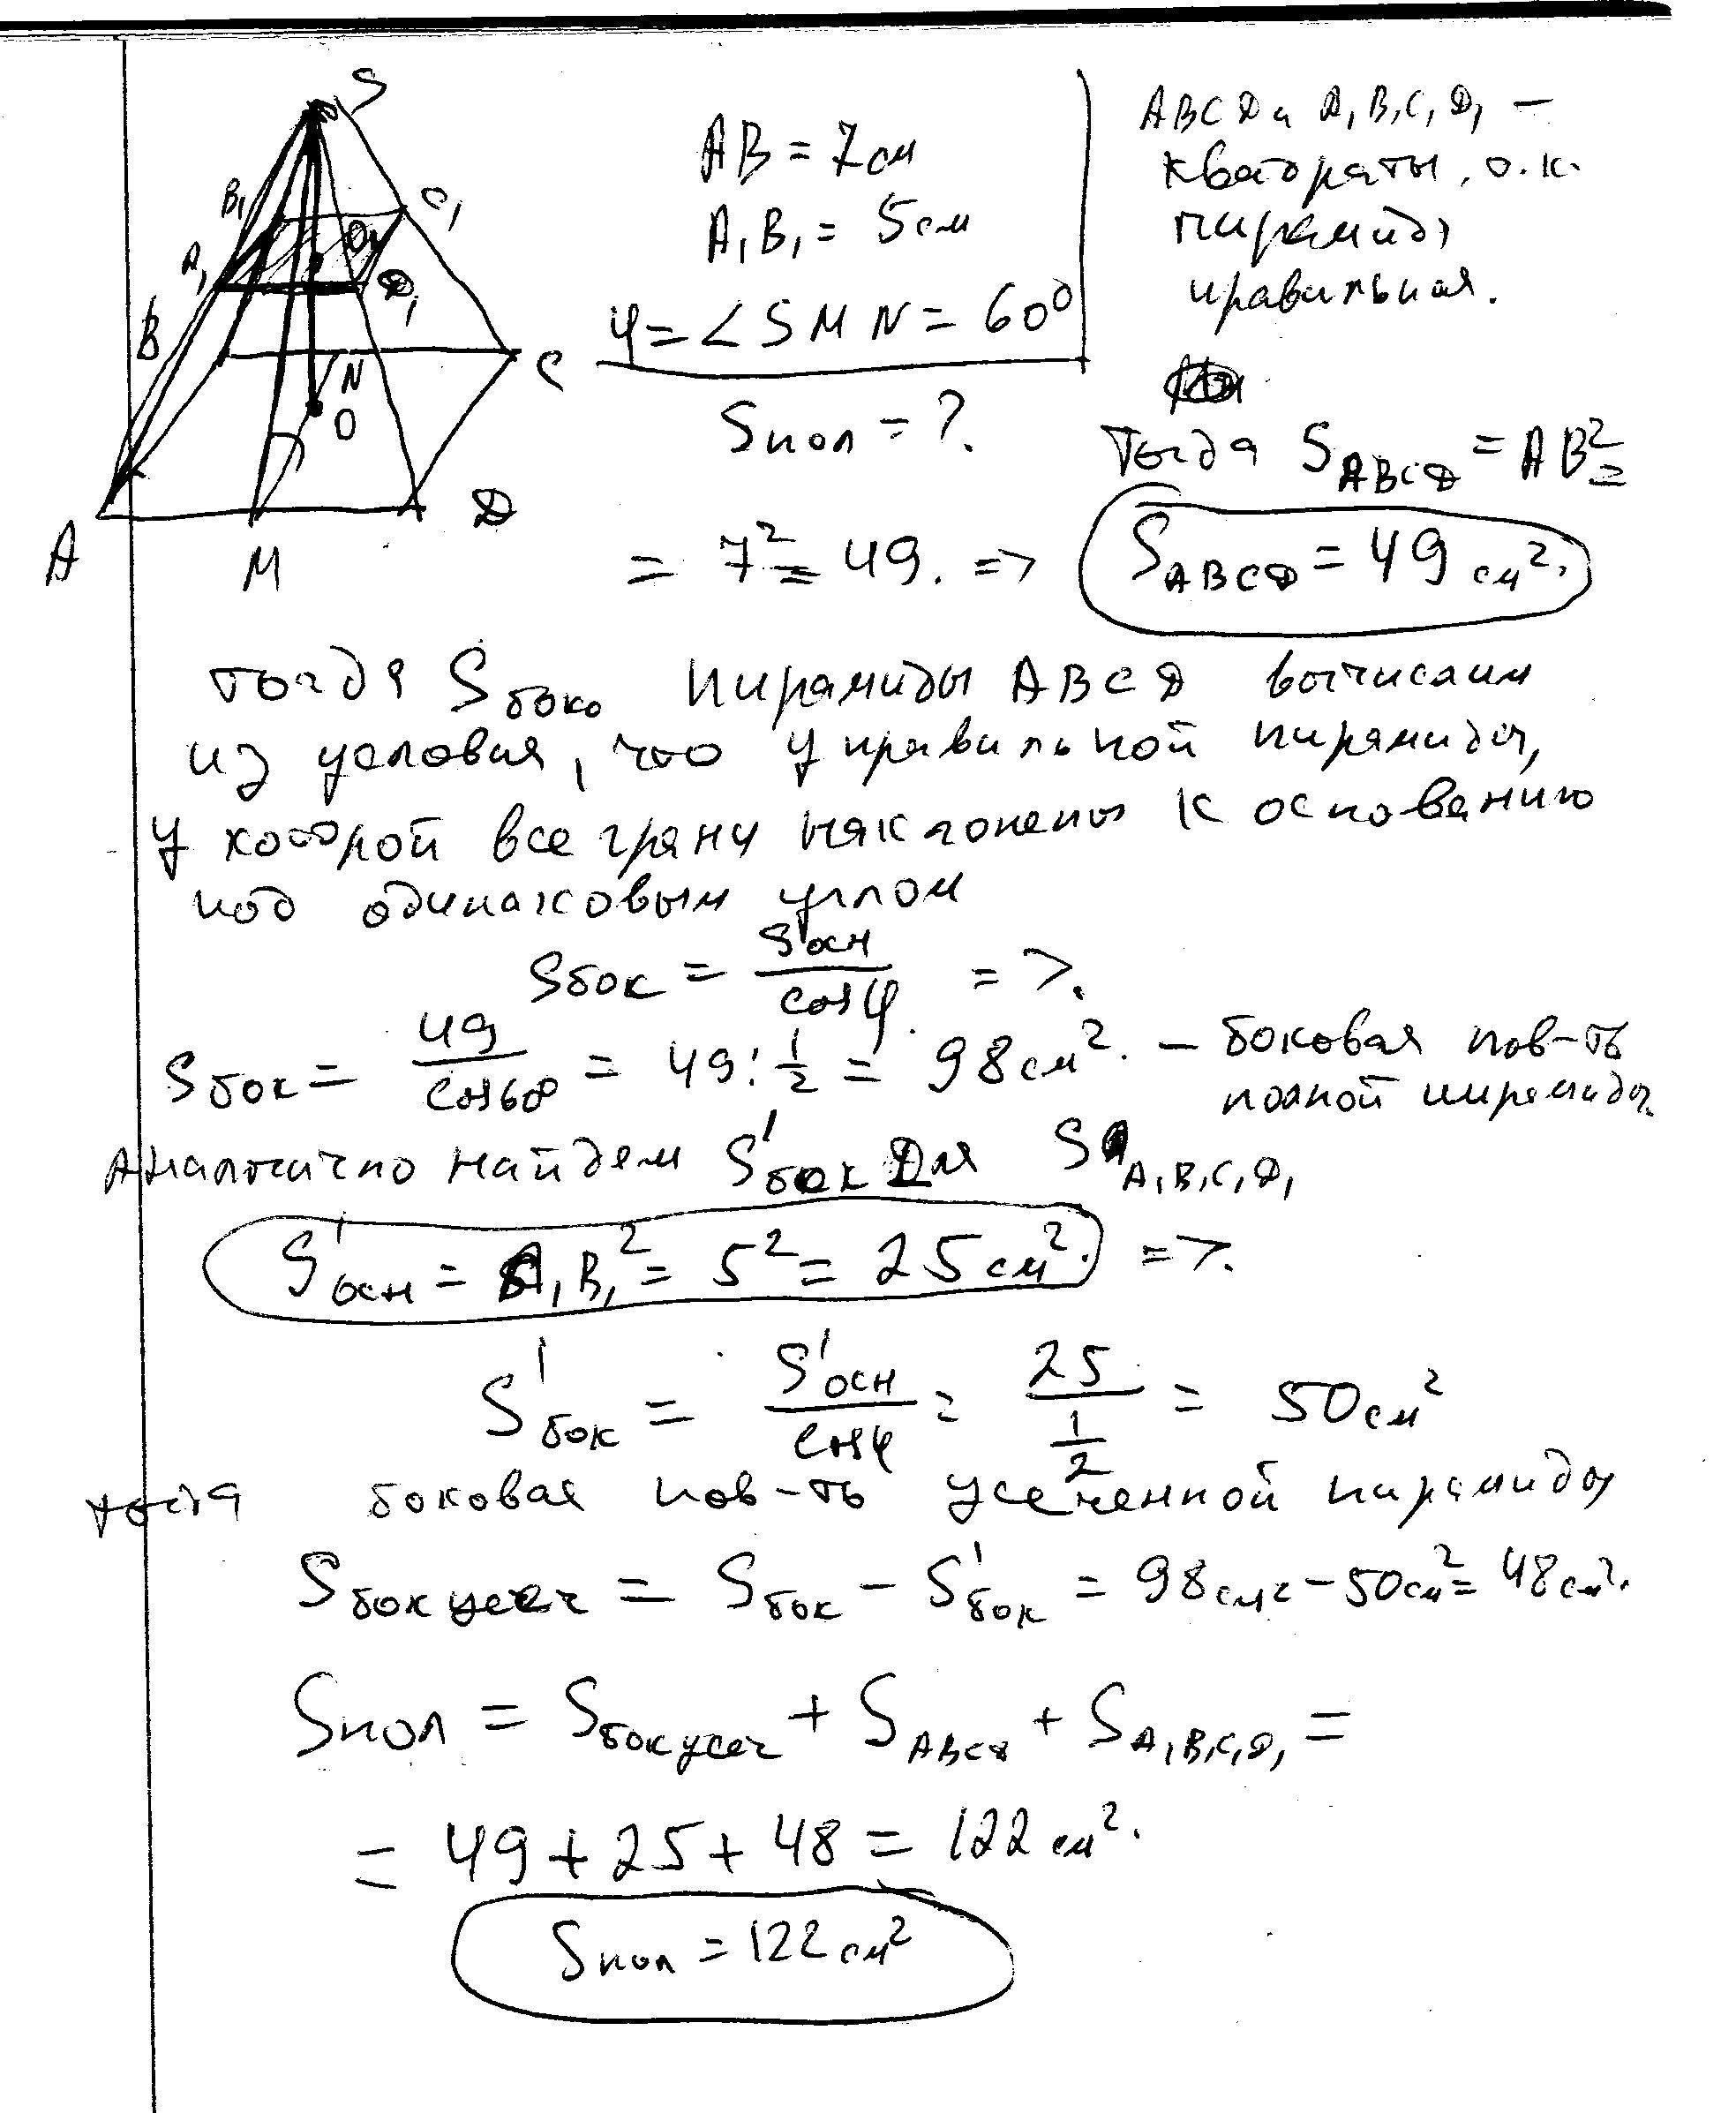 S
B₁
C₁
A₁
O₁
D₁
B
N
C
O
A
M
D
AB = 7см
A₁B₁ = 5см
φ = ∠SMN = 60°
Sпол = ?.
ABCD и A₁B₁C₁D₁ —
квадраты, т.к.
пирамида
правильная.
Тогда S ABCD = AB² =
= 7² = 49. => S ABCD = 49 см².
тогда Sбок. пирамиды ABCD вычислим
из условия, что у правильной пирамиды,
у которой все грани наклонены к основанию
под одинаковым углом
Sбок = Sосн / cosφ =>.
Sбок = 49 / cos60° = 49 : 1/2 = 98 см². — боковая пов-ть
полной пирамиды.
Аналогично найдем S'бок для S A₁B₁C₁D₁
S'осн = A₁B₁² = 5² = 25 см². =>.
S'бок = S'осн / cosφ = 25 / 1/2 = 50 см²
тогда боковая пов-ть усеченной пирамиды
Sбок усеч = Sбок − S'бок = 98см² − 50см² = 48см².
Sпол = Sбок усеч + S ABCD + S A₁B₁C₁D₁ =
= 49 + 25 + 48 = 122 см².
Sпол = 122 см²